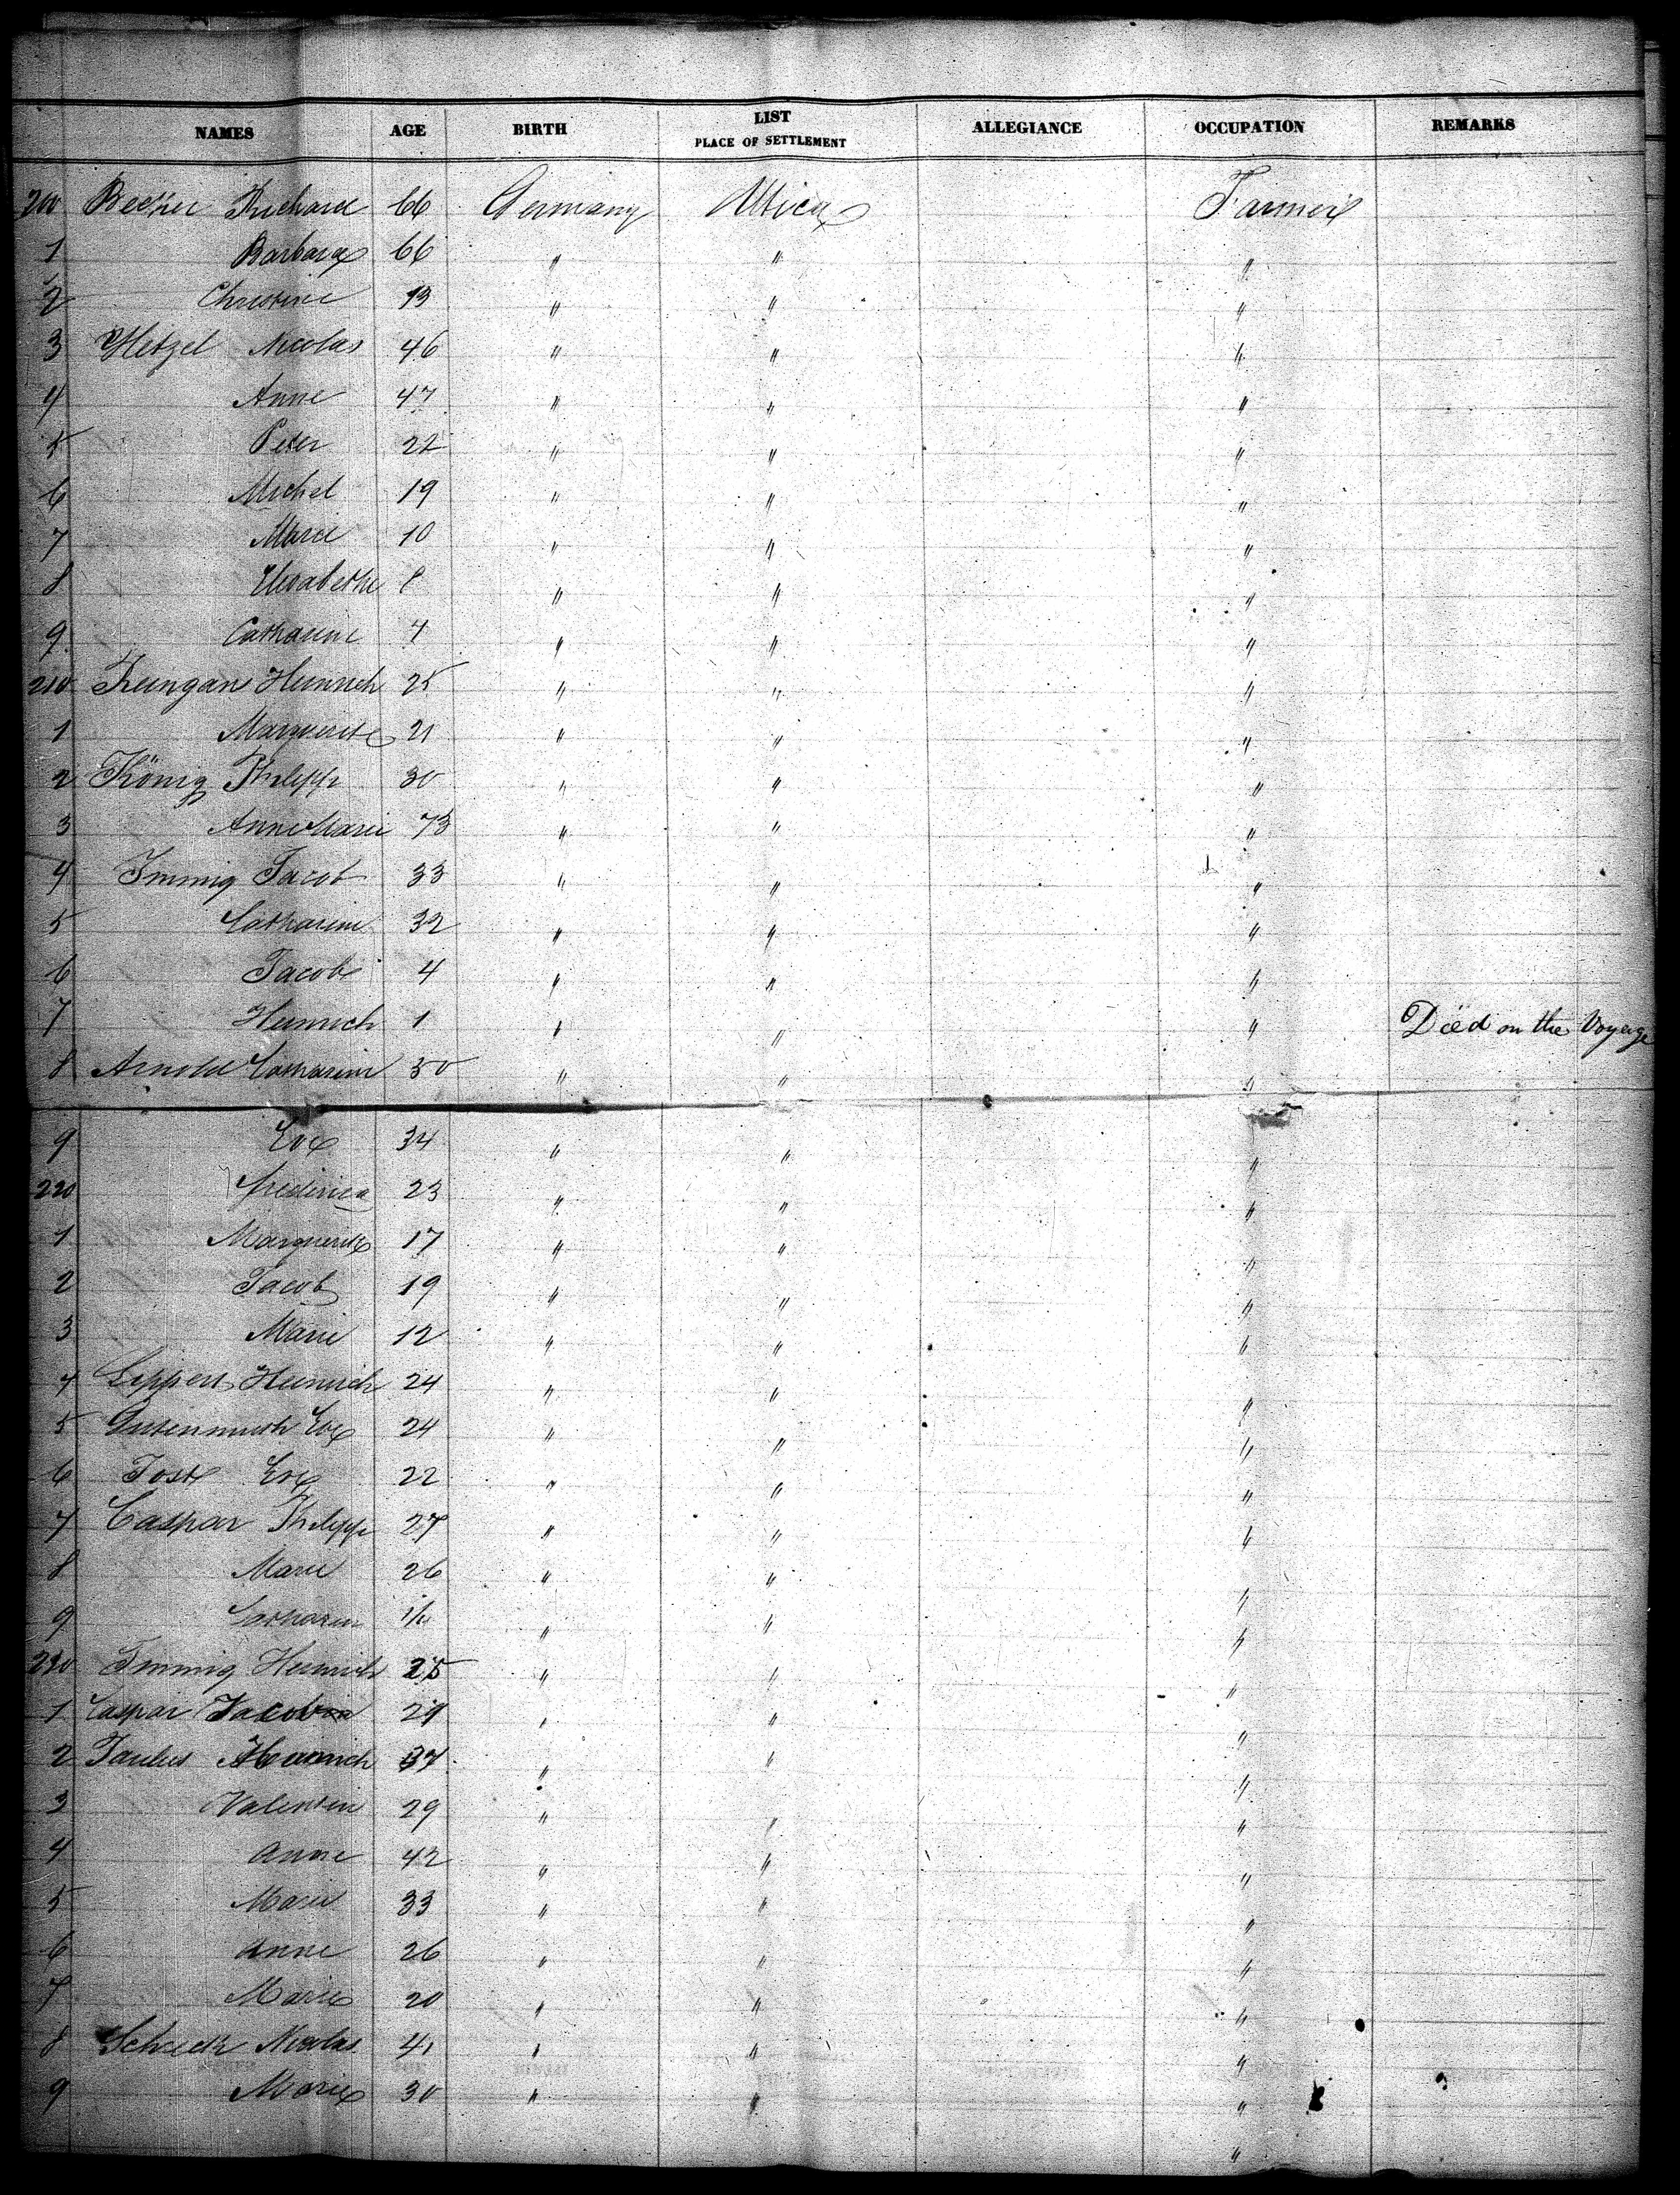 NAMES AGE BIRTH LIST PLACE OF SETTLEMENT ALLEGIANCE OCCUPATION REMARKS
200 Becker Richard 66 Germany Utica Farmer
1 Barbara 66 " " "
2 Christine 13 " " "
3 Hetzel Nicolas 46 " " "
4 Anne 47 " " "
5 Peter 22 " " "
6 Michel 19 " " "
7 Marie 10 " " "
8 Elisabethe 8 " " "
9 Catharine 4 " " "
210 Heinrich 25 " " "
1 Marguerite 21 " " "
2 König Philipp 30 " " "
3 Anne Marie 73 " " "
4 Immig Jacob 33 " " "
5 Catharine 32 " " "
6 Jacob 4 " " "
7 Heinrich 1 " " " Died on the Voyage
8 Arnold Catharine 50 " " "
9 Eve 34 " " "
220 frederica 23 " " "
1 Marguerite 17 " " "
2 Jacob 19 " " "
3 Marie 12 " " "
4 Lippert Heinrich 24 " " "
5 Gutenmuth Eve 24 " " "
6 Jost Eve 22 " " "
7 Caspar Philipp 27 " " "
8 Marie 26 " " "
9 Catharine " " "
230 Immig Heinrich 25 " " "
1 Caspar Jacob 29 " " "
2 Heinrich 37 " " "
3 Valentin 29 " " "
4 Anne 42 " " "
5 Marie 33 " " "
6 Anne 26 " " "
7 Marie 20 " " "
8 Nicolas 41 " " "
9 Marie 30 " " "
"